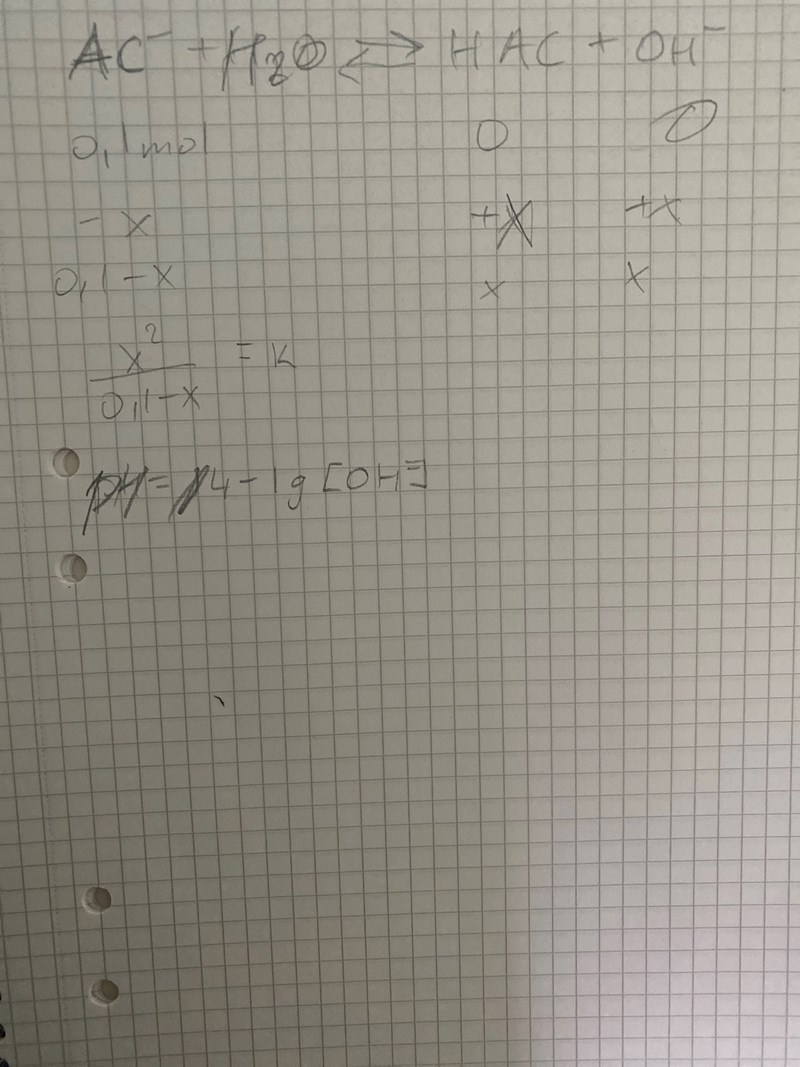 AC⁻ + H₂O ⇌ HAC + OH⁻
0,1mol 0 0
- x +x +x
0,1-x x x
x² / 0,1-x = K
pH = 14 - lg [OH⁻]